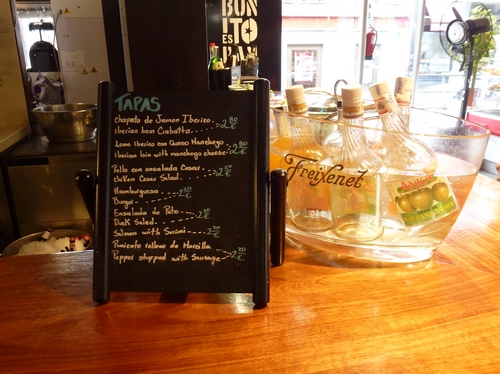 BON
ITO
ES
TAPAS
chapata de Jamon Iberico
iberian ham Ciabatta
Lomo Iberico con Queso Manchego
iberian loin with manchego cheese
Pollo con ensalada Cesar
chiken Cesar Salad
Hamburguesa
Burger
Ensalada de Pato
Duck Salad
Salmon with Surimi
Pimiento relleno de Morcilla
Pepper stuffed with Sausage
Freixenet